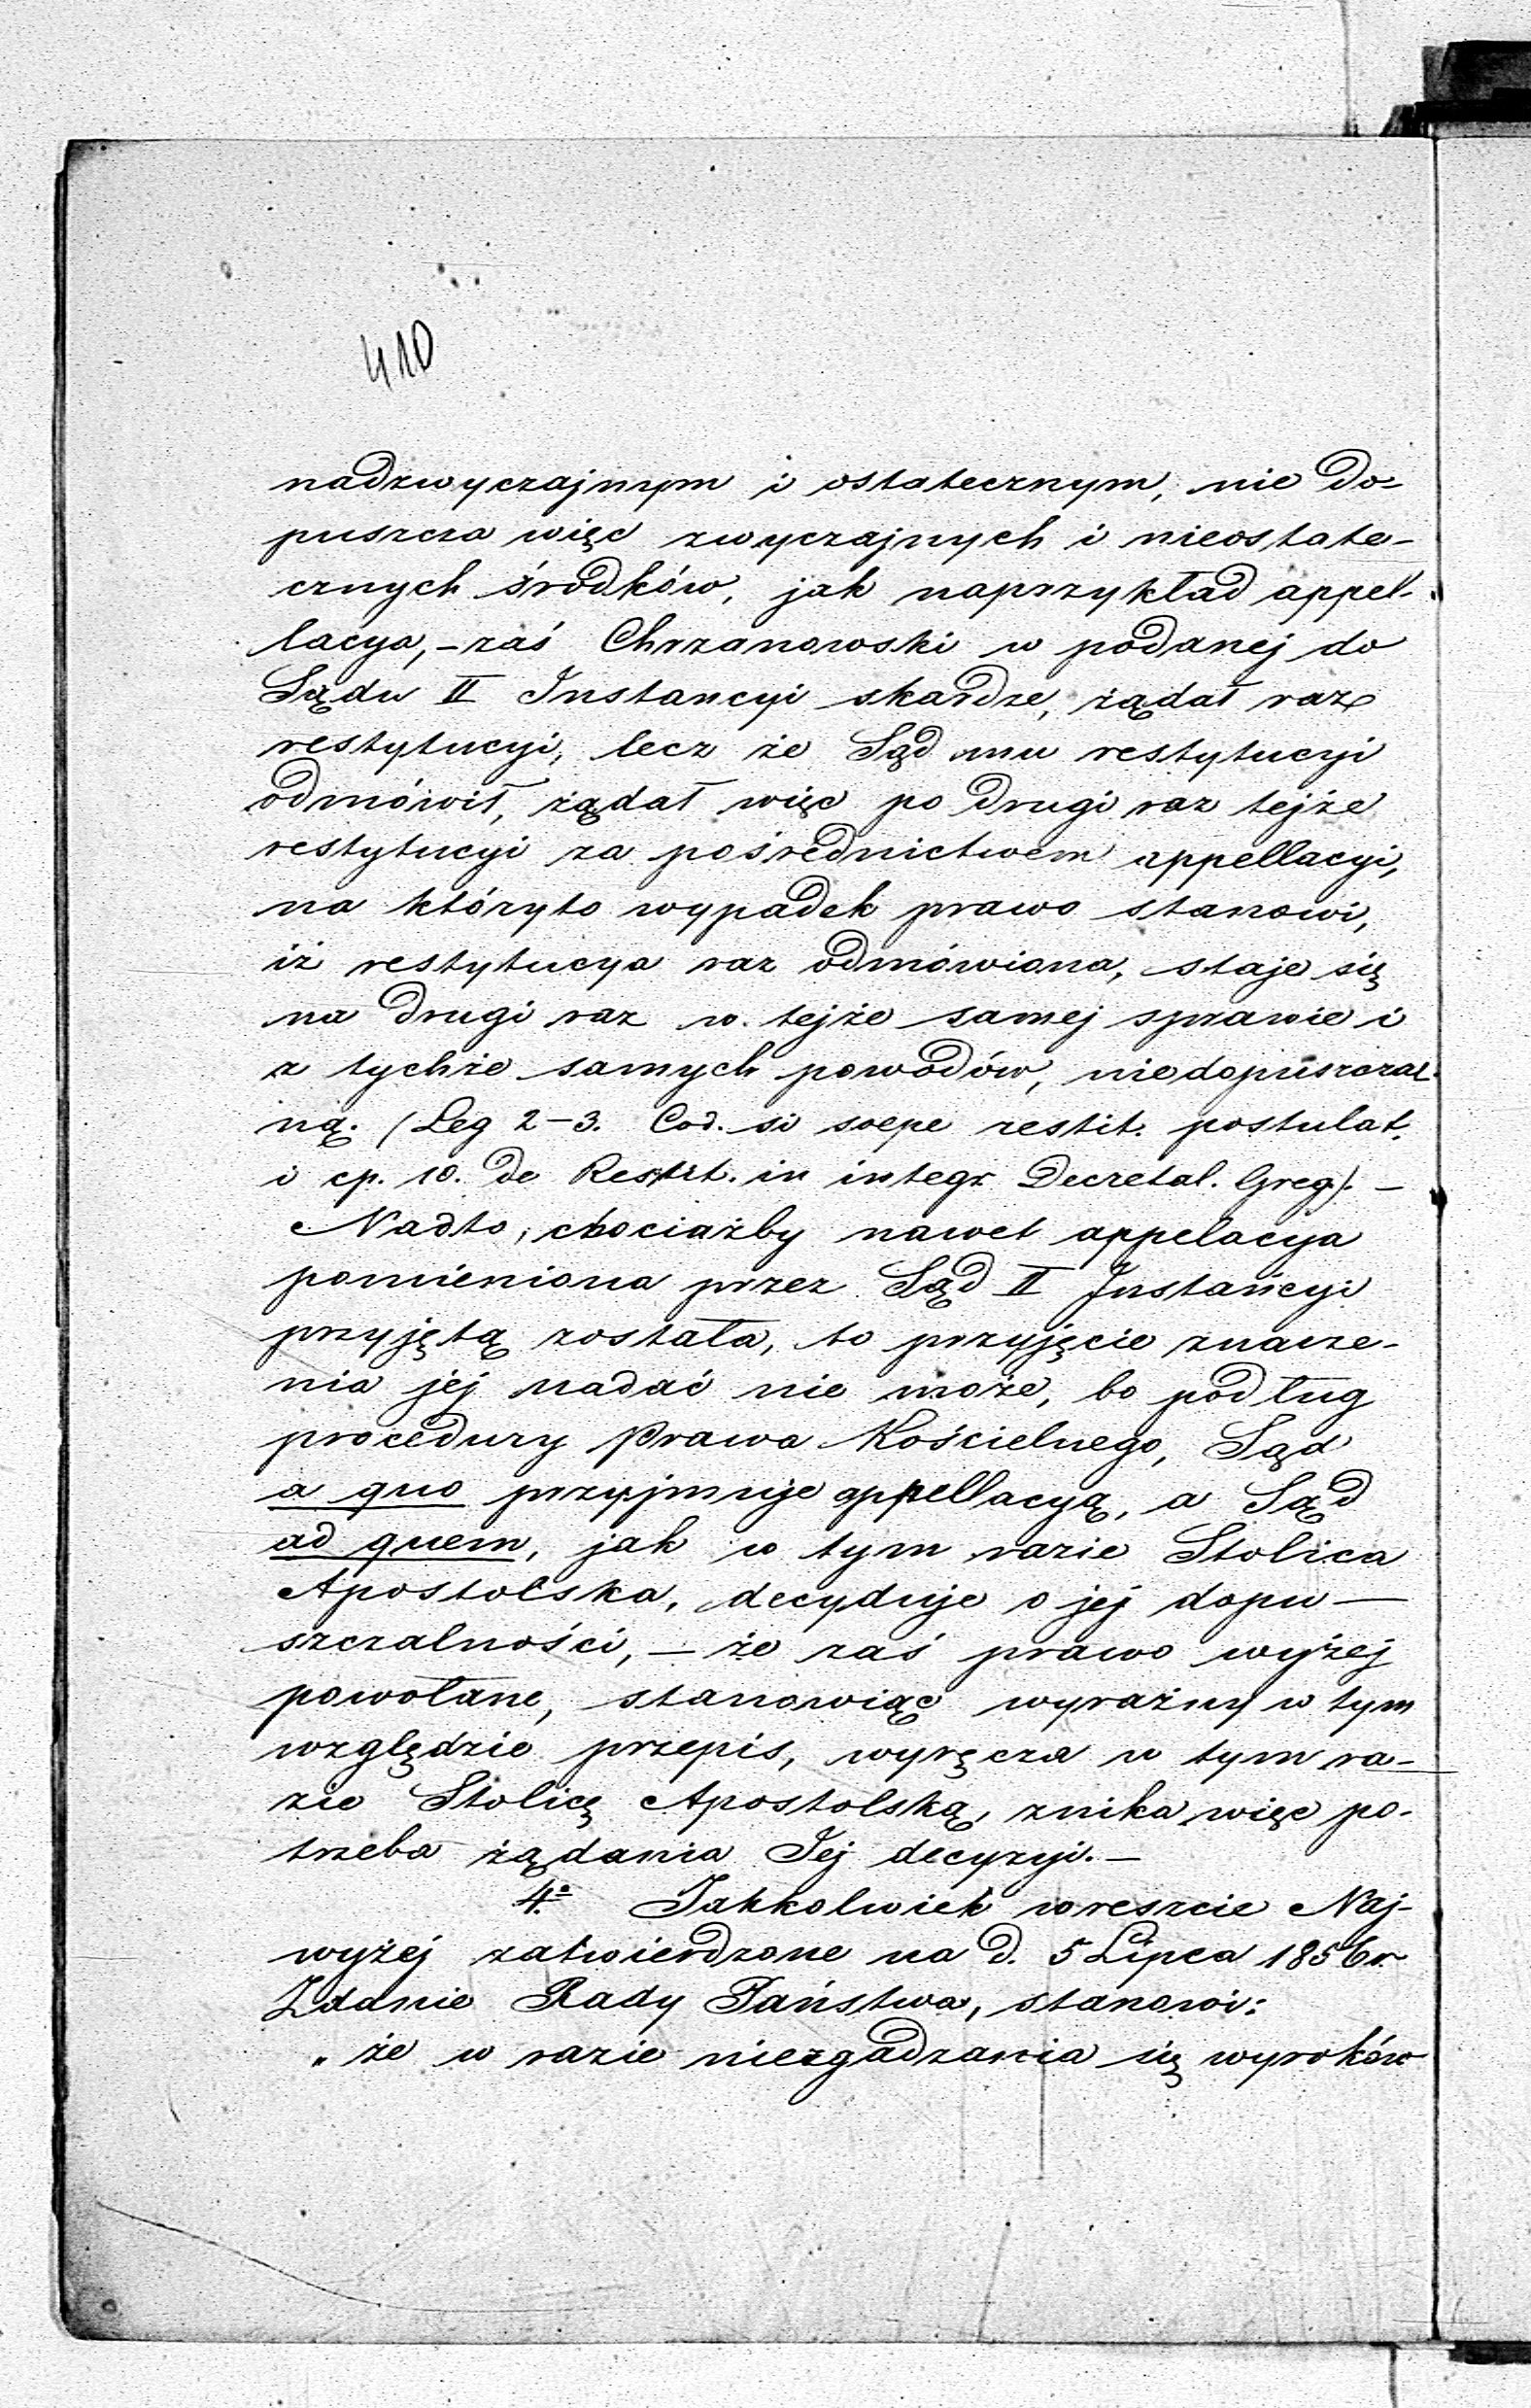 410
nadzwyczajnym i ostatecznym, nie do-
puszcza więc zwyczajnych i nieostate-
cznych środków, jak naprzykład appel-
lacya, – zaś Chrzanowski w podanej do
Sądu II Instancyi skardze, żądał raz
restytucyi, lecz że Sąd mu restytucyi
odmówił, żądał więc po drugi raz tejże
restytucyi za pośrednictwem appellacyi,
na któryto wypadek prawo stanowi,
iż restytucya raz odmówiona, staje się
na drugi raz w tejże samej sprawie i
z tychże samych powodów, niedopuszczal-
ną. (Leg 2–3. Cod. si soepe restit. postulat.
i cp. 10. de Restit. in integr. Decretal. Greg). –
Nadto, chociażby nawet appelacya
pomieniona przez Sąd II Instańcyi
przyjętą została, to przyjęcie znacze-
nia jej nadać nie może, bo podług
procedury Prawa Kościelnego, Sąd
a quo przyjmuje appellacyą, a Sąd
ad quem, jak w tym razie Stolica
Apostolska, decyduje o jej dopu –
szczalności, – że zaś prawo wyżej
powołane, stanowiąc wyraźny w tym
względzie przepis, wyręcza w tym ra-
zie Stolicę Apostolską, znika więc po-
trzeba żądania Jej decyzyi. –
4.º Jakkolwiek wreszcie Naj-
wyżej zatwierdzone na d. 5 Lipca 1856 r.
Zdanie Rady Państwa, stanowi:
„że w razie niezgadzania się wyroków